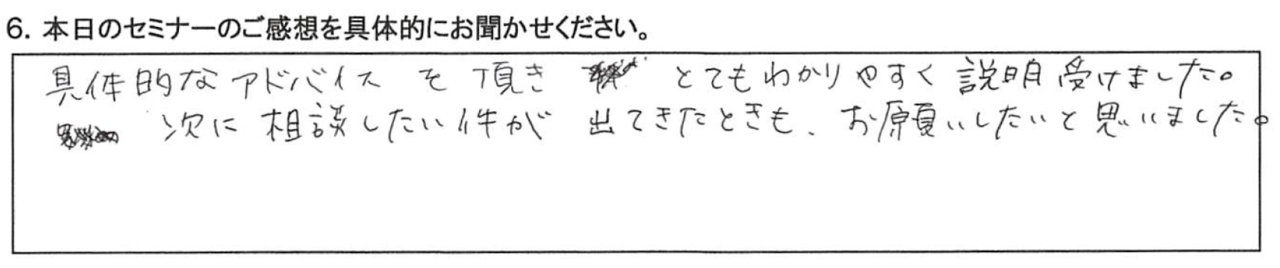 6. 本日のセミナーのご感想を具体的にお聞かせください。
具体的なアドバイスを頂き とてもわかりやすく説明受けました。
次に相談したい件が 出てきたときも、お願いしたいと思いました。